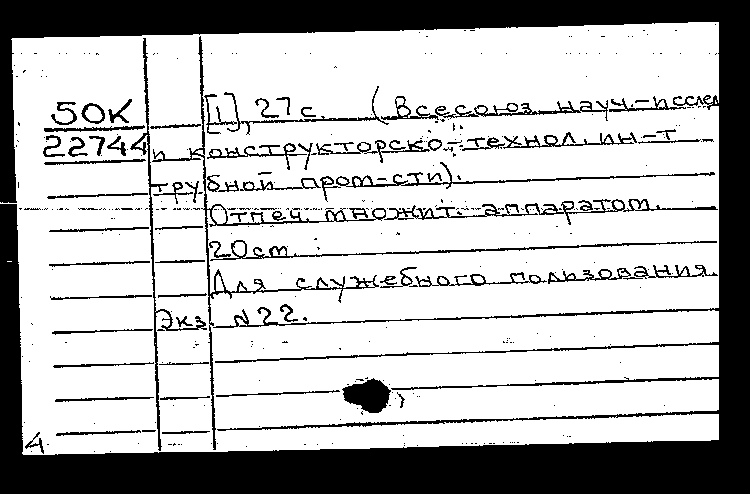 50К [1], 27с. (Всесоюз. науч.-исслед
22744 и конструкторско-технол. ин-т
трубной пром-сти).
Отпеч. множит. аппаратом.
20см.
Для служебного пользования.
Экз. N22.
4